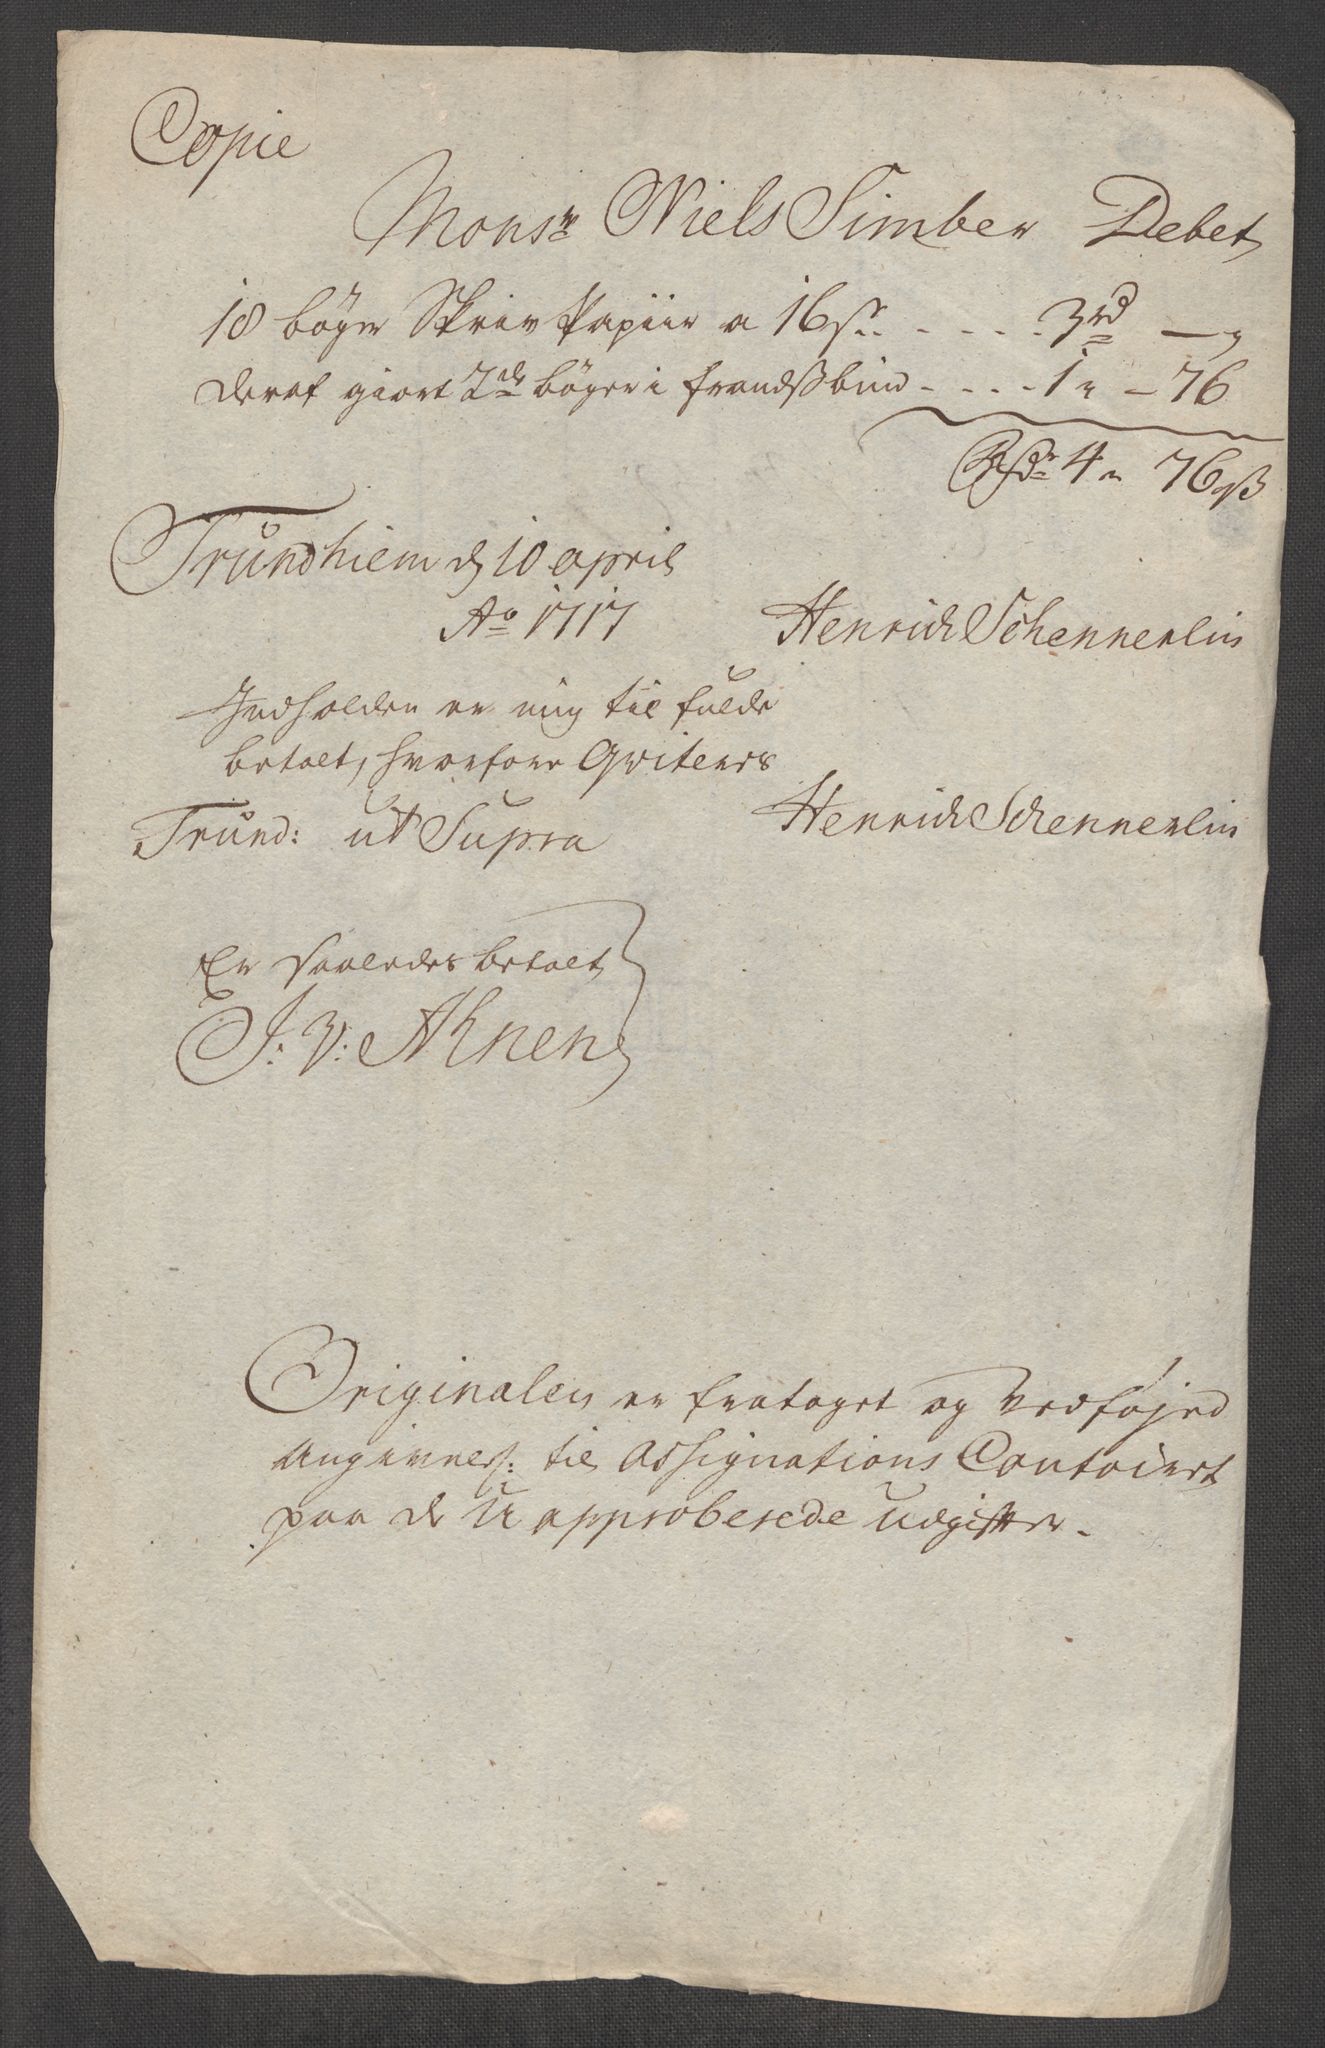 Copie
Monsr Niels Simber Debet
18 bøger Skriv Papiir a 16 s. - - - - 3 rd —„
deraf giort 2de bøger i frandsbind - - - - 1 „ – 76
Rdr 4 „ 76 ß
Trundhiem d 10 april
Ao 1717
Henrich Schennerlin
Indholden er mig til fulde
betalt, hvorfore Qviteris
Trund: ut Supra
Henrich Schennerlin
Er saaledes betalt
J: V: Ahnen
Originalen er frataget og vedføjed
Angivels: til Assignations Contoiret
paa de U approberede udgifter.